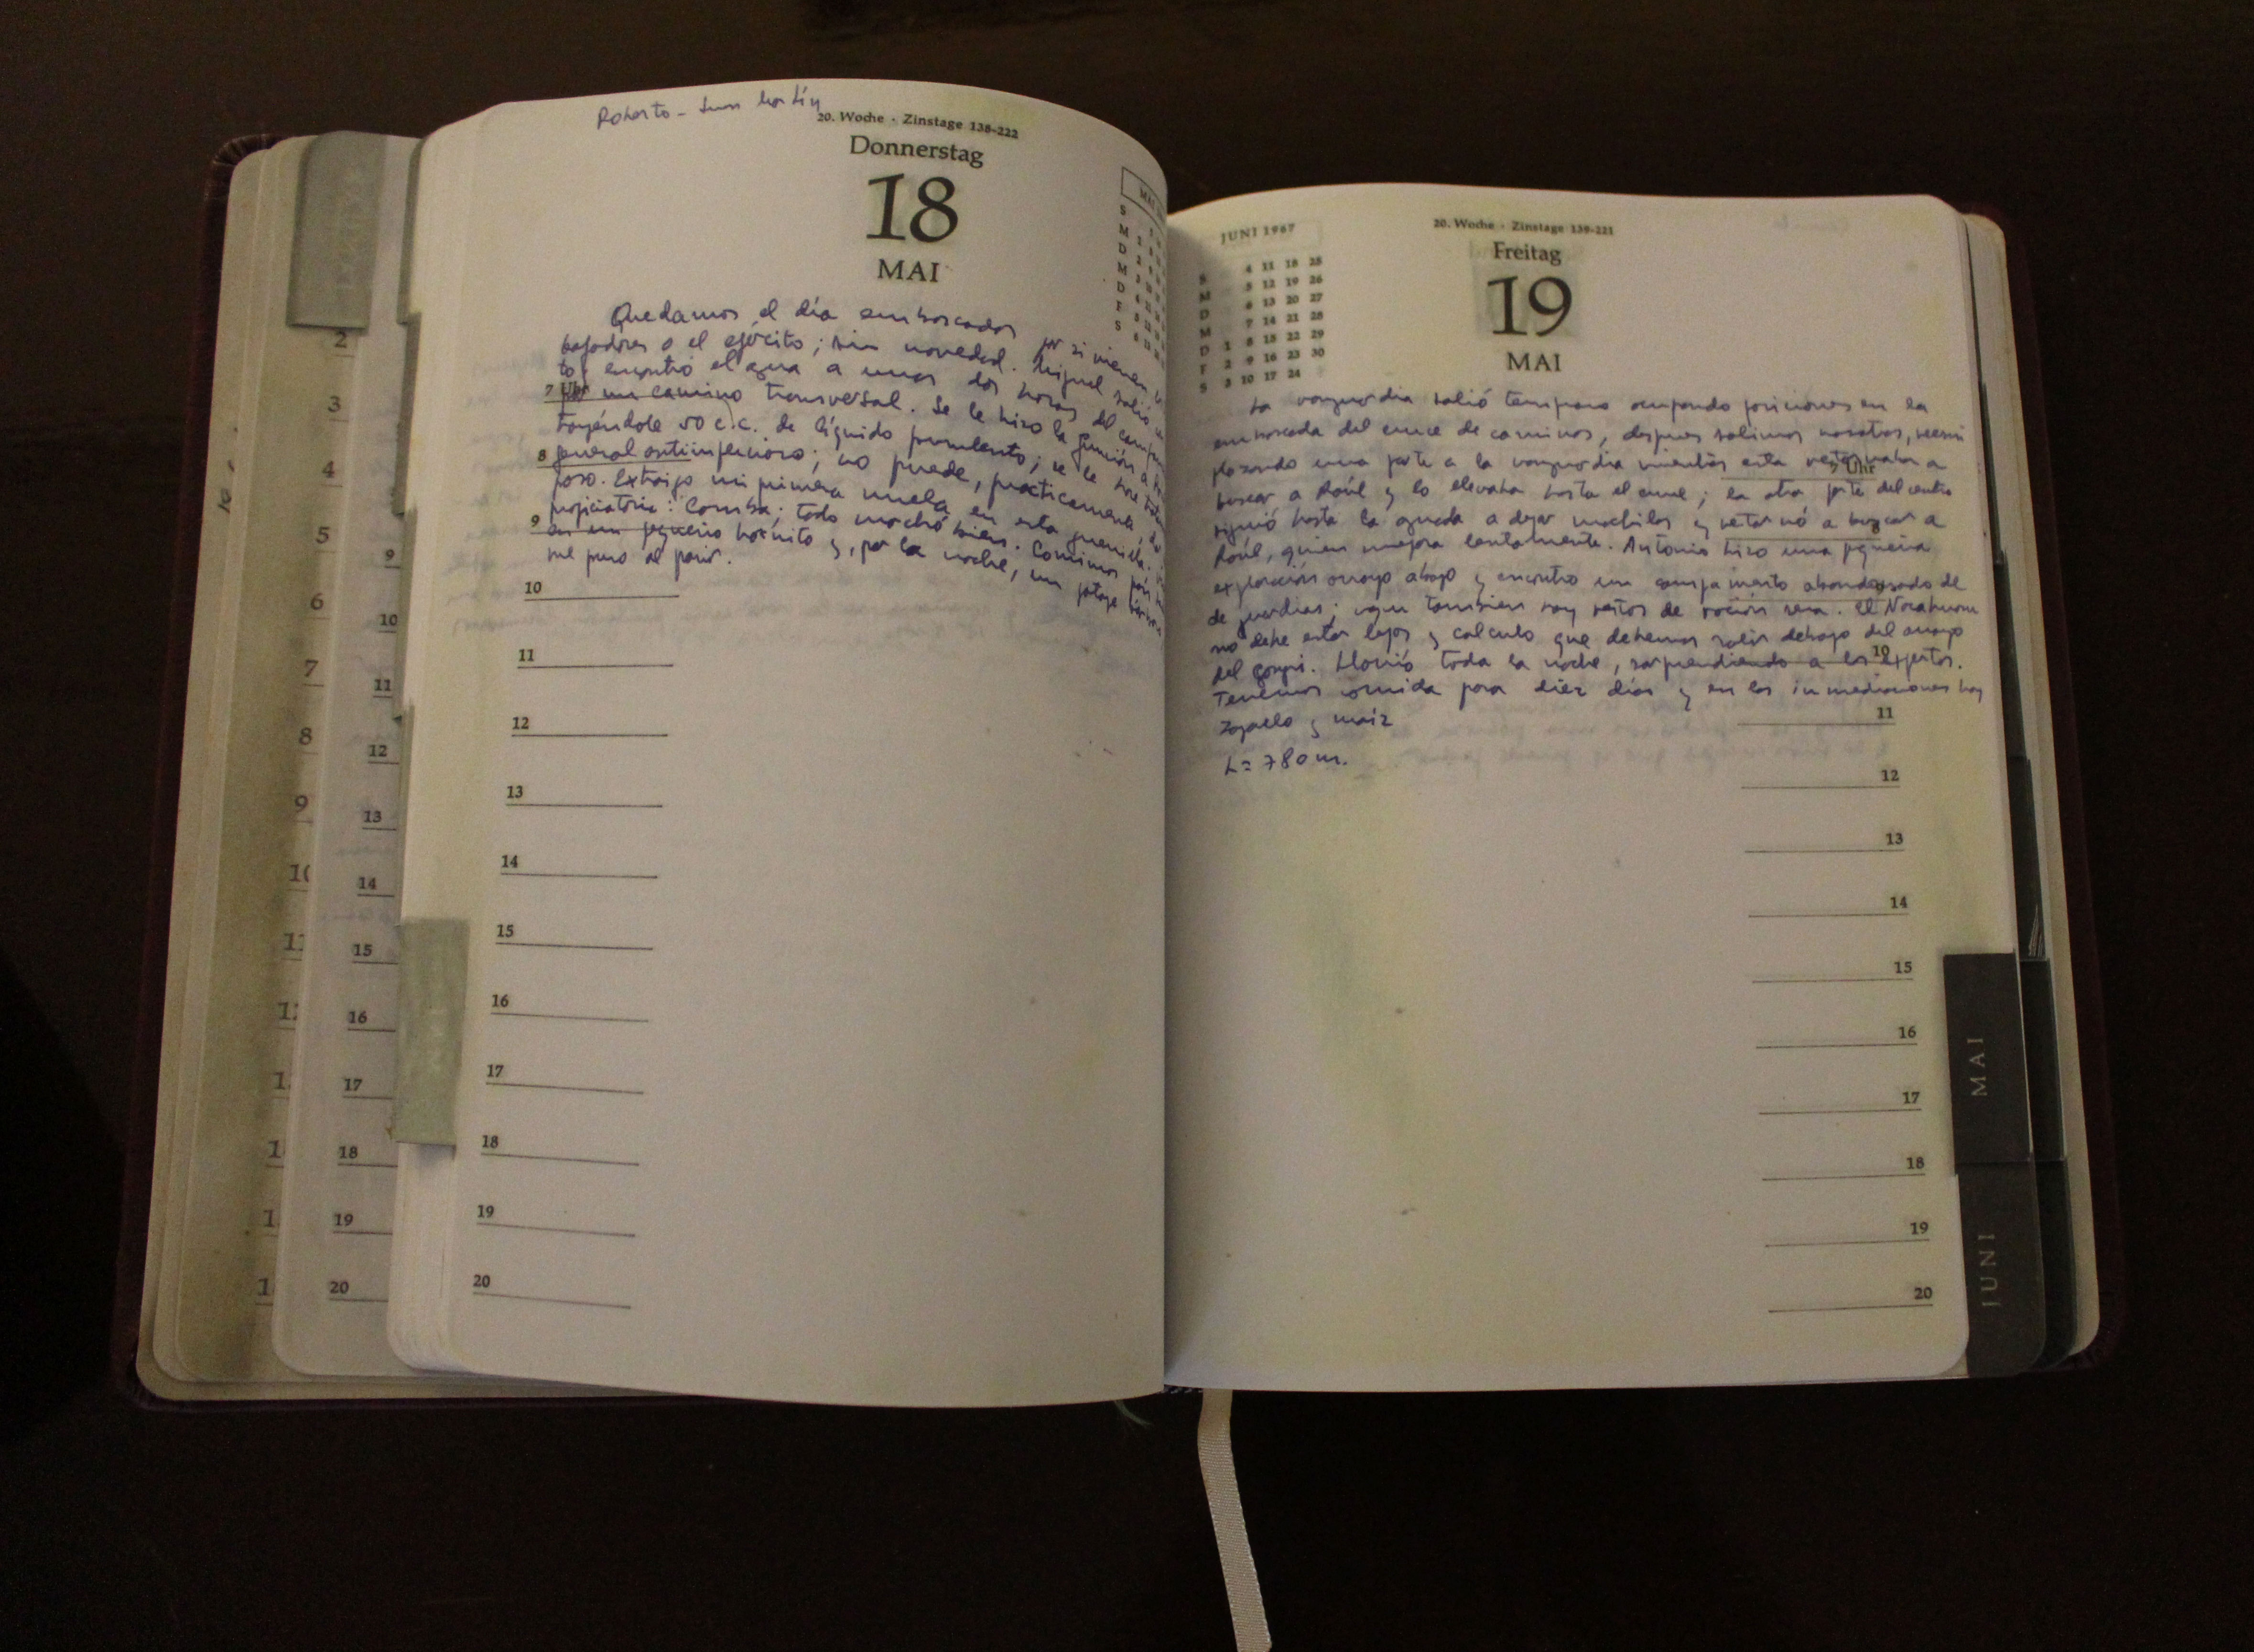 Roberto - Juan Martín
20. Woche · Zinstage 138-222
Donnerstag
18
MAI
MAI
S
M
D
M
D
F
S
Quedamos el día emboscados por si vienen
o el ejército; sin novedad. Miguel salió
encontró el agua a unas dos horas del
7 Uhr
por un camino transversal. Se le hizo la punción a
50 c.c. de líquido purulento; se le
8
general antiinfeccioso; no puede, prácticamente,
paso. Extraigo mi primera muela en esta guerrilla.
propiciatoria: Camba; todo marchó bien. Comimos pan
9
en un pequeño hornito y, por la noche, un potaje
me puso al parir.
10
11
12
13
14
15
16
17
18
19
20
2
3
4
5
6
7
8
9
9
10
11
12
13
14
15
16
17
18
19
20
JUNI 1967
S 4 11 18 25
M 5 12 19 26
D 6 13 20 27
M 7 14 21 28
D 1 8 15 22 29
F 2 9 16 23 30
S 3 10 17 24
20. Woche · Zinstage 139-221
Freitag
19
MAI
La vanguardia salió temprano ocupando posiciones en la
emboscada del cruce de caminos, después salimos nosotros,
plazando una parte a la vanguardia mientras esta retornaba a
7 Uhr
buscar a Raúl y lo llevaba hasta el cruce; la otra parte del centro
siguió hasta la aguada a dejar mochilas y retornó a buscar a
Raúl, quien mejora lentamente. Antonio hizo una pequeña
exploración arroyo abajo y encontró un campamento abandonado de
de guardias; aquí también hay restos de ración seca. El Ñacahuasu
no debe estar lejos y calculo que debemos salir debajo del arroyo
10
del Congrí. Llovió toda la noche, sorprendiendo a los expertos.
Tenemos comida para diez días y en las inmediaciones hay
Zapallo y maíz
h= 780 m.
11
12
13
14
15
16
17
18
19
20
MAI
JUNI